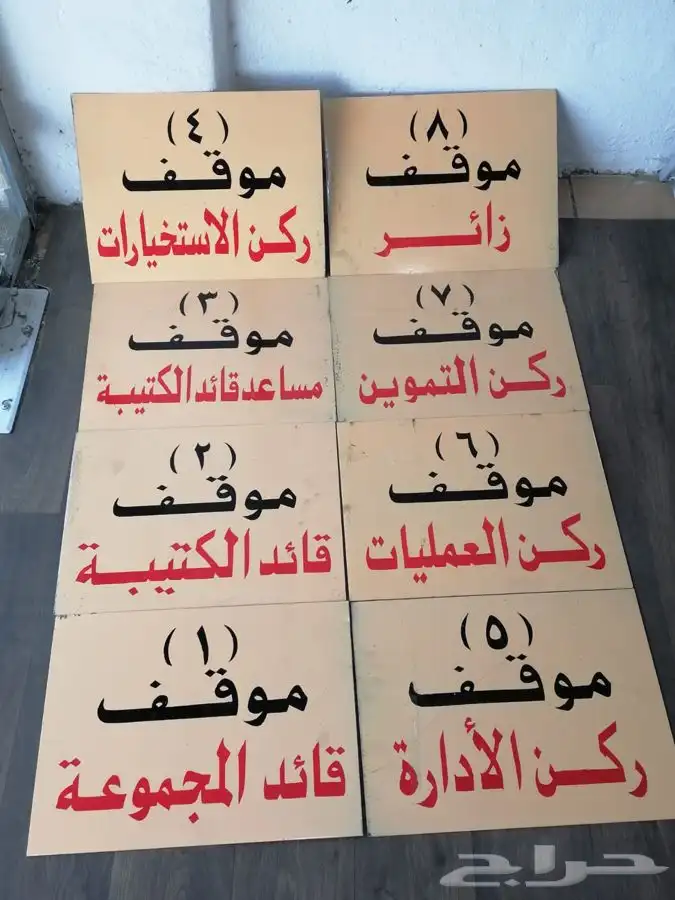 (٨)
موقف
زائر
(٤)
موقف
ركن الاستخيارات
(٧)
موقف
ركن التموين
(٣)
موقف
مساعد قائد الكتيبة
(٦)
موقف
ركن العمليات
(٢)
موقف
قائد الكتيبة
(٥)
موقف
ركن الأدارة
(١)
موقف
قائد المجموعة
حراج